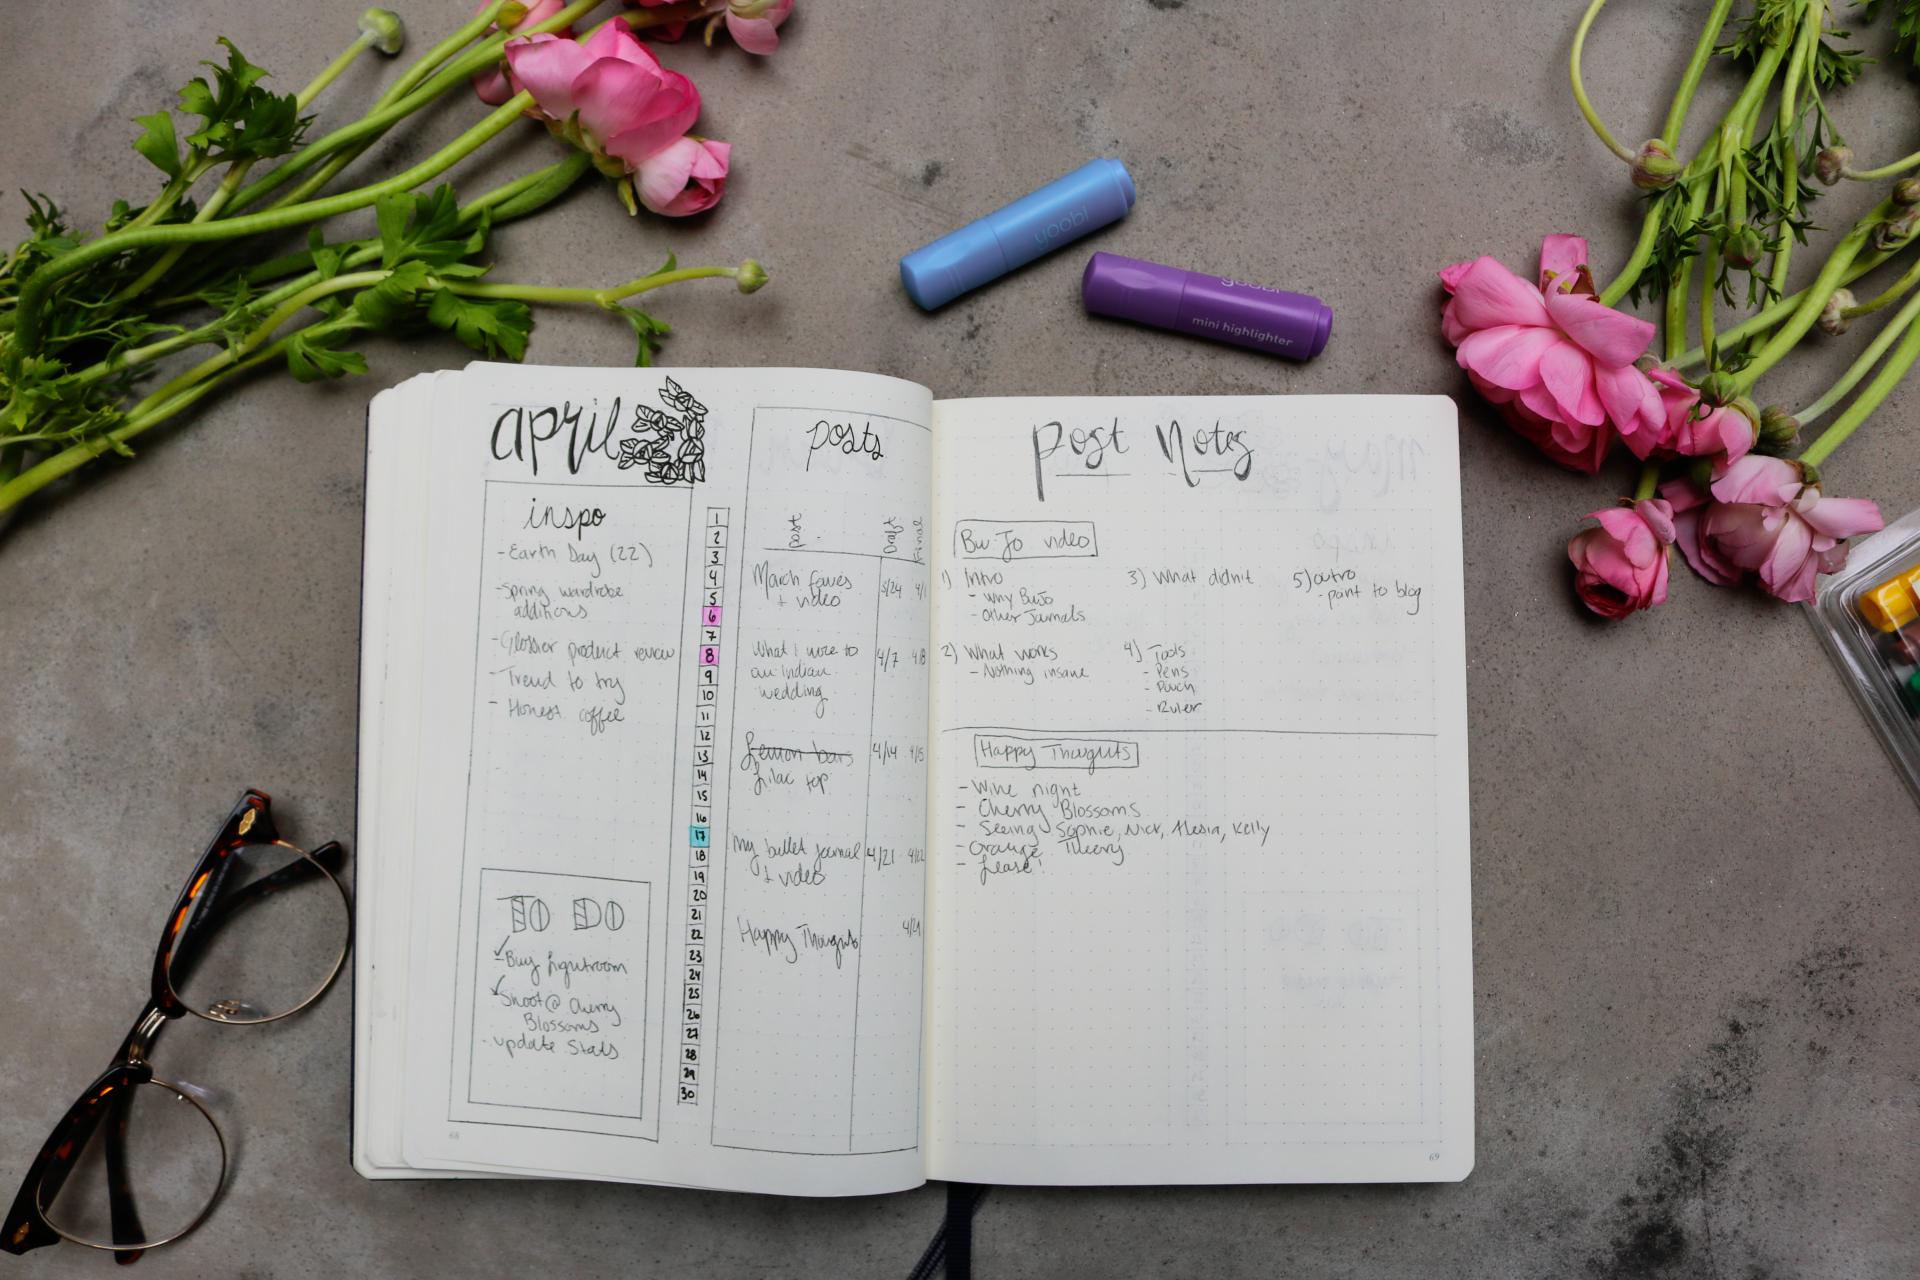 yoobi
yoobi
mini highlighter
april
inspo
- Earth Day (22)
- Spring wardrobe
additions
- Glossier product review
- Trend to try
- Honest coffee
TO DO
- Buy Lightroom
- Shoot @ Cherry
Blossoms
- update Stats
68
1
2
3
4
5
6
7
8
9
10
11
12
13
14
15
16
17
18
19
20
21
22
23
24
25
26
27
28
29
30
posts
post Draft Final
March faves 3/24 4/1
+ video
What I wore to 4/7 4/8
an Indian
wedding
Lemon bars 4/14 4/15
Lilac top
My bullet journal 4/21 4/22
+ video
Happy Thoughts
post Notes
Bu Jo video
1) Intro
- why BuJo
- Other Journals
2) What works
- Nothing insane
3) What didn't
4) Tools
- Pens
- Pouch
- Ruler
5) outro
- point to blog
Happy Thoughts
- Wine night
- Cherry Blossoms
- Seeing Sophie, Nick, Alesia, Kelly
- Orange Theory
- Lease!
69